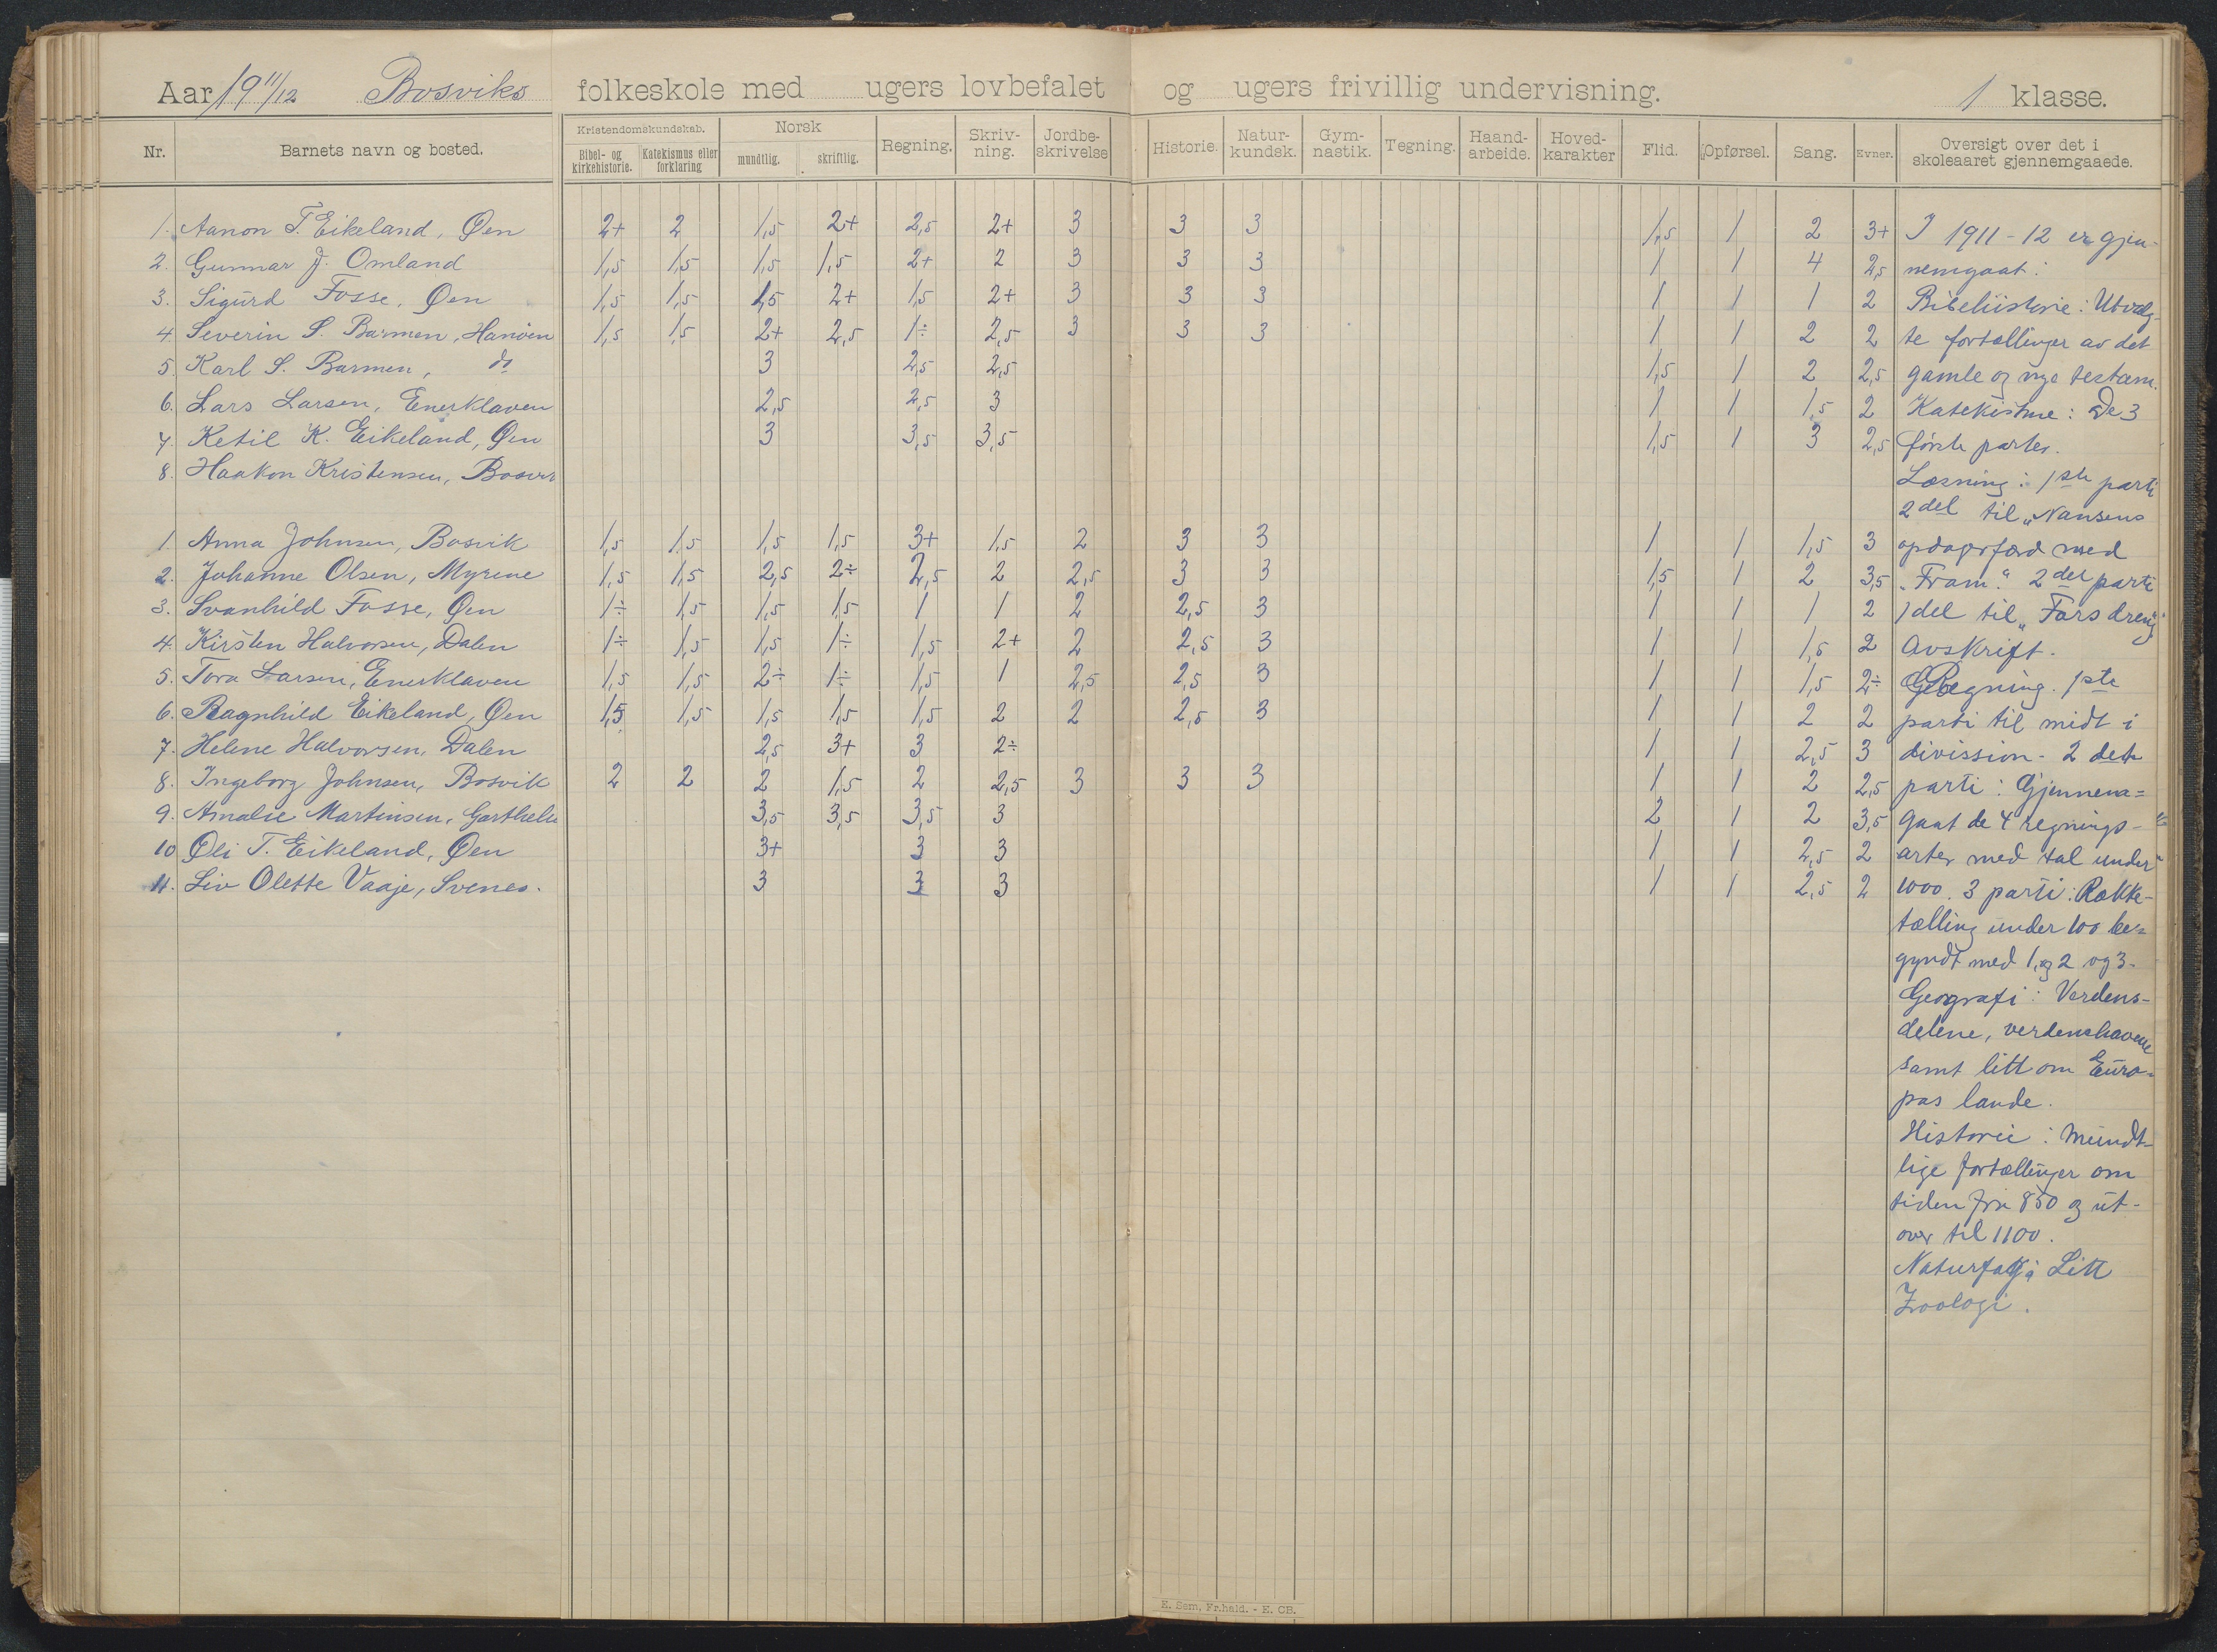 Aar 19 11/12 Bosviks folkeskole med ugers lovbefalet og ugers frivillig undervisning. 1 klasse.
Nr. Barnets navn og bosted. Kristendomskundskab. Norsk Regning. Skriv-ning. Jordbe-skrivelse Historie. Natur-kundsk. Gym-nastik. Tegning. Haand-arbeide. Hoved-karakter Flid. Opførsel. Sang. Evner. Oversigt over det i skoleaaret gjennemgaaede.
Bibel- og kirkehistorie. Katekismus eller forklaring mundtlig. skriftlig.
1. Aanon T. Eikeland, Øen 2+ 2 1,5 2+ 2,5 2+ 3 3 3 1,5 1 2 3+
2. Gunnar J. Omland 1,5 1,5 1,5 1,5 2+ 2 3 3 3 1 1 4 2,5
3. Sigurd Fosse, Øen 1,5 1,5 1,5 2+ 1,5 2+ 3 3 3 1 1 1 2
4 Severin S. Barmen, Hanöen 1,5 1,5 2+ 2,5 1÷ 2,5 3 3 3 1 1 2 2
5. Karl S. Barmen, do 3 2,5 2,5 1,5 1 2 2,5
6. Lars Larsen, Enerklaven 2,5 2,5 3 1 1 1,5 2
7. Ketil K. Eikeland, Øen 3 3,5 3,5 1,5 1 3 2,5
8. Haakon Kristensen,
1. Anna Johnsen, Bosvik 1,5 1,5 1,5 1,5 3+ 1,5 2 3 3 1 1 1,5 3
2. Johanne Olsen, Myrene 1,5 1,5 2,5 2÷ 2,5 2 2,5 3 3 1,5 1 2 3,5
3. Svanhild Fosse, Øen 1÷ 1,5 1,5 1,5 1 1 2 2,5 3 1 1 1 2
4. Kirsten Halvorsen, Dalen 1÷ 1,5 1,5 1÷ 1,5 2+ 2 2,5 3 1 1 1,5 2
5. Tora Larsen, Enerklaven 1,5 1,5 2÷ 1÷ 1,5 1 2,5 2,5 3 1 1 1,5 2÷
6. Ragnhild Eikeland, Øen 1,5 1,5 1,5 1,5 1,5 2 2 2,5 3 1 1 2 2
7. Helene Halvorsen, Dalen 2,5 3+ 3 2÷ 1 1 2,5 3
8. Ingeborg Johnsen, Bosvik 2 2 2 1,5 2 2,5 3 3 3 1 1 2 2,5
9. Amalie Martinsen, 3,5 3,5 3,5 3 2 1 2 3,5
10 Oli T. Eikeland, Øen 3+ 3 3 1 1 2,5 2
11. Liv Olette Vaaje, Svenes. 3 3 3 1 1 2,5 2
I 1911-12 er gjen-
nemgaat:
Bibelhistorie: Utvalg-
te fortællinger av det
gamle og nye testam.
Katekisme: De 3
første parter.
Læsning: 1ste parti
2 del til „Nansens
opdagsfærd med
„Fram." 2det parti
1 del til „Fars dreng"
Avskrift.
Regning. 1ste
parti til midt i
division - 2 det
parti: Gjennem=
gaat de 4 regnings-
arter med tal under
1000. 3 parti: Række-
tælling under 100 be=
gyndt med 1, og 2 og 3.
Geografi: Verdens-
delene, verdenshavene
samt litt om Euro-
pas lande.
Historie: Mundt-
lige fortællinger om
tiden fra 850 og ut-
over til 1100.
Naturfag: Litt
Zoologi.
E. Sem, Fr.hald. - E. CB.